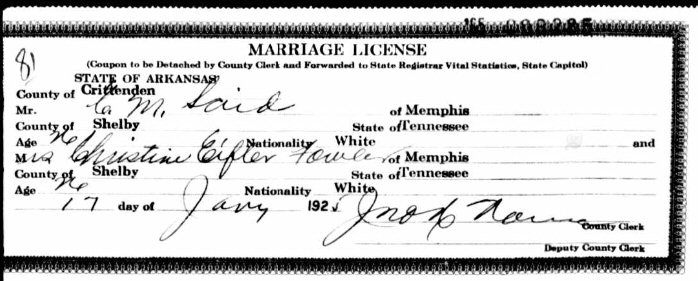 81
MARRIAGE LICENSE
(Coupon to be Detached by County Clerk and Forwarded to State Registrar Vital Statistics, State Capitol)
STATE OF ARKANSAS
County of Crittenden
Mr. C. M. of Memphis
County of Shelby State of Tennessee
Age Nationality White and
Mrs Christine Fowler of Memphis
County of Shelby State of Tennessee
Age Nationality White
17 day of Jany 192
County Clerk
Deputy County Clerk